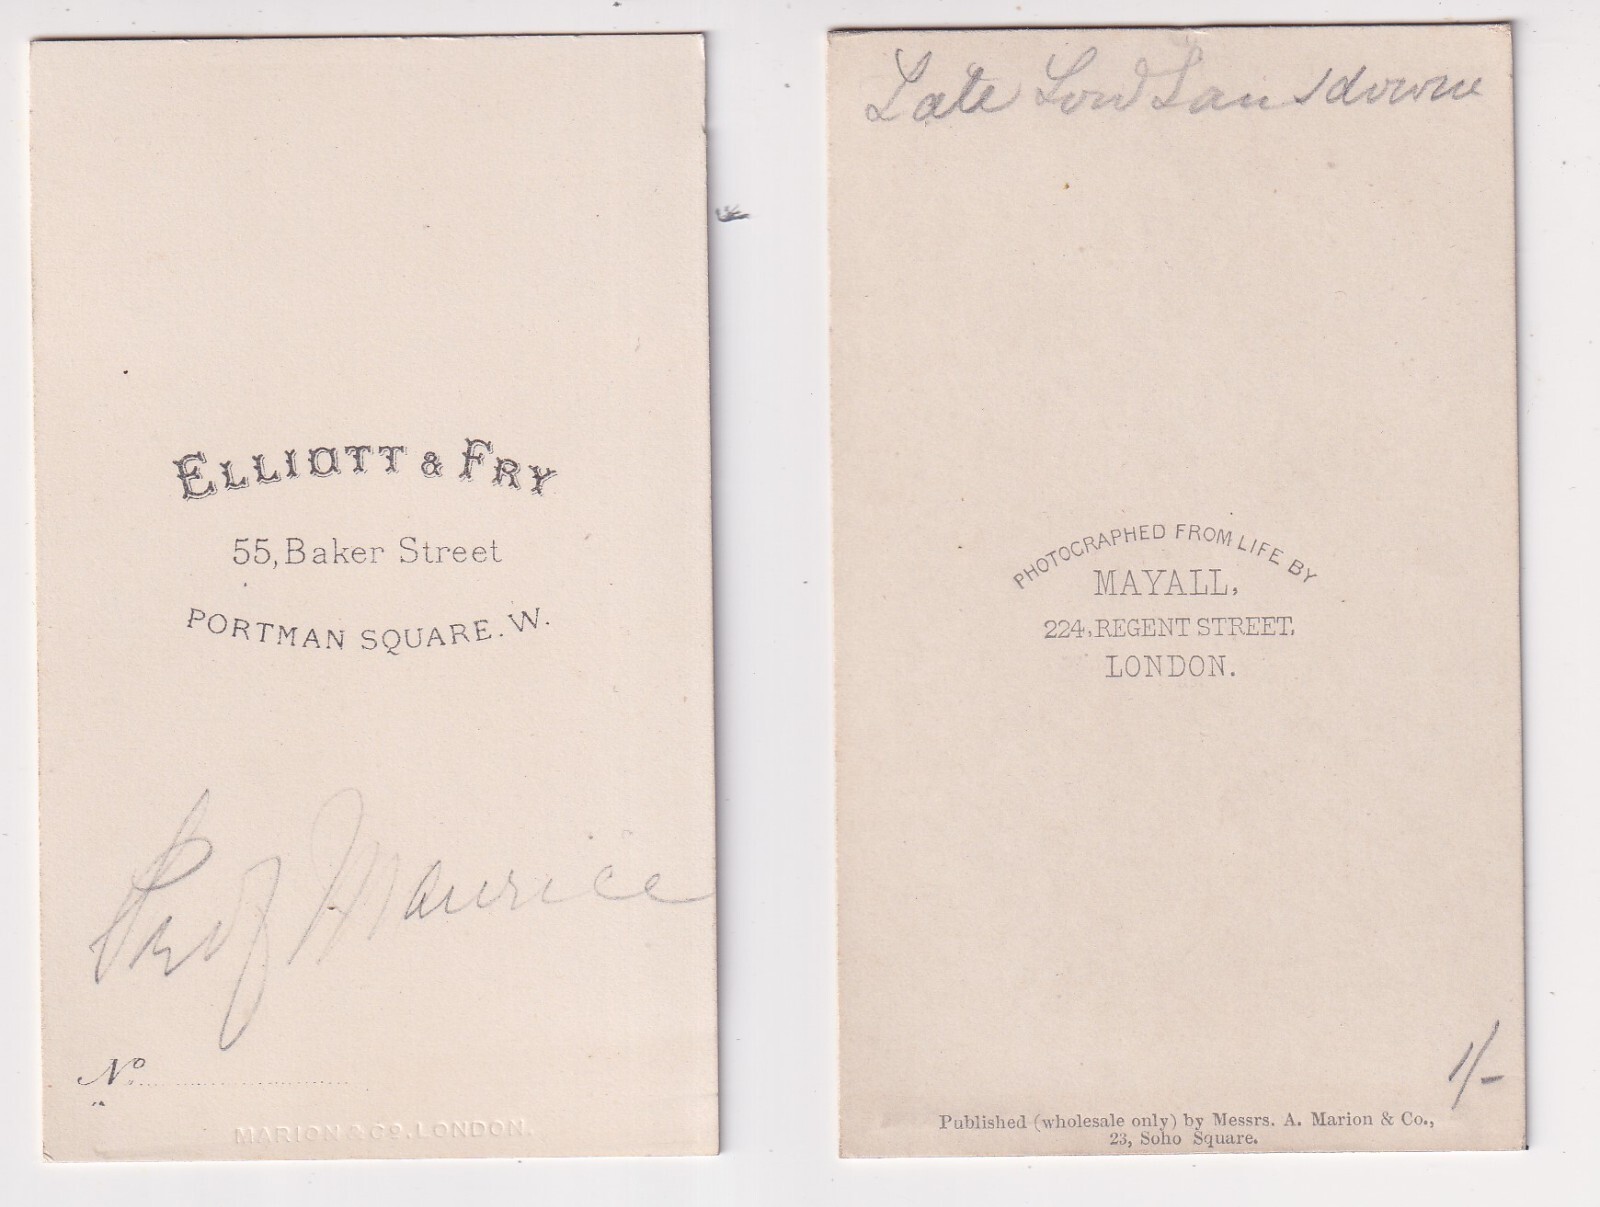 ELLIOTT & FRY
55, Baker Street
PORTMAN SQUARE. W.
Prof Maurice
No.
MARION & CO, LONDON.
Late Lord Lansdowne
PHOTOGRAPHED FROM LIFE BY
MAYALL,
224, REGENT STREET,
LONDON.
1/-
Published (wholesale only) by Messrs. A. Marion & Co.,
23, Soho Square.